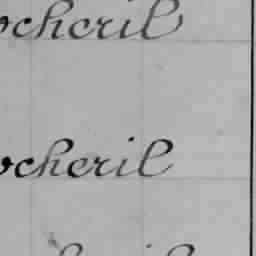 ocheril
ocheril